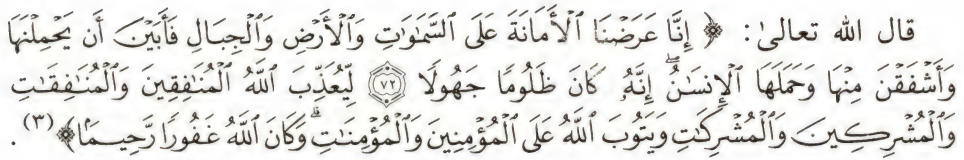 قال الله تعالىٰ: ﴿ إِنَّا عَرَضْنَا ٱلْأَمَانَةَ عَلَى ٱلسَّمَٰوَٰتِ وَٱلْأَرْضِ وَٱلْجِبَالِ فَأَبَيْنَ أَن يَحْمِلْنَهَا
وَأَشْفَقْنَ مِنْهَا وَحَمَلَهَا ٱلْإِنسَٰنُ ۖ إِنَّهُۥ كَانَ ظَلُومًا جَهُولًا ۝٧٢ لِّيُعَذِّبَ ٱللَّهُ ٱلْمُنَٰفِقِينَ وَٱلْمُنَٰفِقَٰتِ
وَٱلْمُشْرِكِينَ وَٱلْمُشْرِكَٰتِ وَيَتُوبَ ٱللَّهُ عَلَى ٱلْمُؤْمِنِينَ وَٱلْمُؤْمِنَٰتِ ۗ وَكَانَ ٱللَّهُ غَفُورًا رَّحِيمًا ﴾(٣).